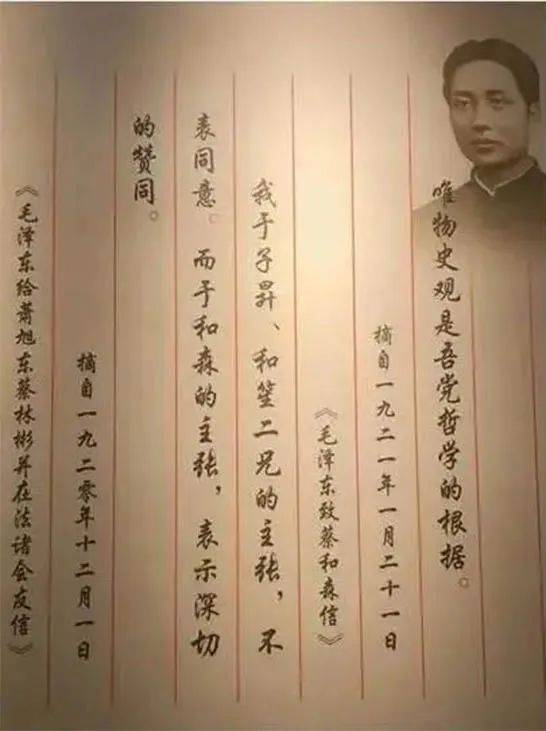 唯物史观是吾党哲学的根据。
摘自一九二一年一月二十一日
《毛泽东致蔡和森信》
我于子昇、和笙二兄的主张，不
表同意。而于和森的主张，表示深切
的赞同。
摘自一九二零年十二月一日
《毛泽东给萧旭东蔡林彬并在法诸会友信》